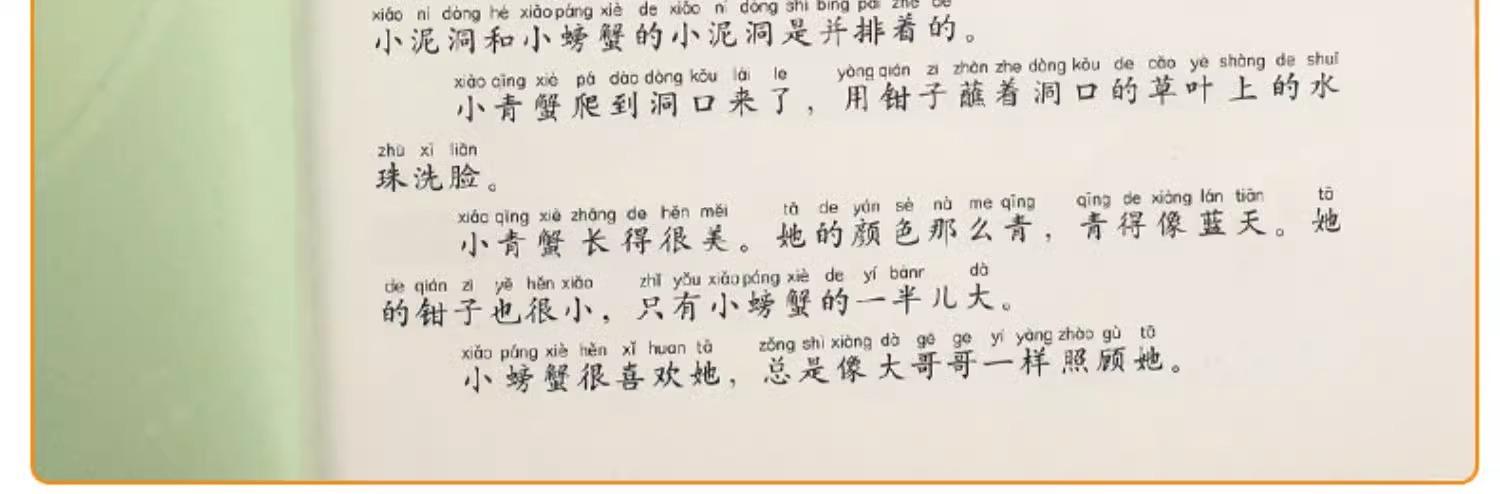 xiǎo ní dòng hé xiǎo páng xiè de xiǎo ní dòng shì bìng pái zhe de
小泥洞和小螃蟹的小泥洞是并排着的。
xiǎo qīng xiè pá dào dòng kǒu lái le yòng qián zi zhàn zhe dòng kǒu de cǎo yè shàng de shuǐ
小青蟹爬到洞口来了，用钳子蘸着洞口的草叶上的水
zhū xǐ liǎn
珠洗脸。
xiǎo qīng xiè zhǎng de hěn měi tā de yán sè nà me qīng qīng de xiàng lán tiān tā
小青蟹长得很美。她的颜色那么青，青得像蓝天。她
de qián zi yě hěn xiǎo zhǐ yǒu xiǎo páng xiè de yí bànr dà
的钳子也很小，只有小螃蟹的一半儿大。
xiǎo páng xiè hěn xǐ huan tā zǒng shì xiàng dà gē ge yí yàng zhào gù tā
小螃蟹很喜欢她，总是像大哥哥一样照顾她。